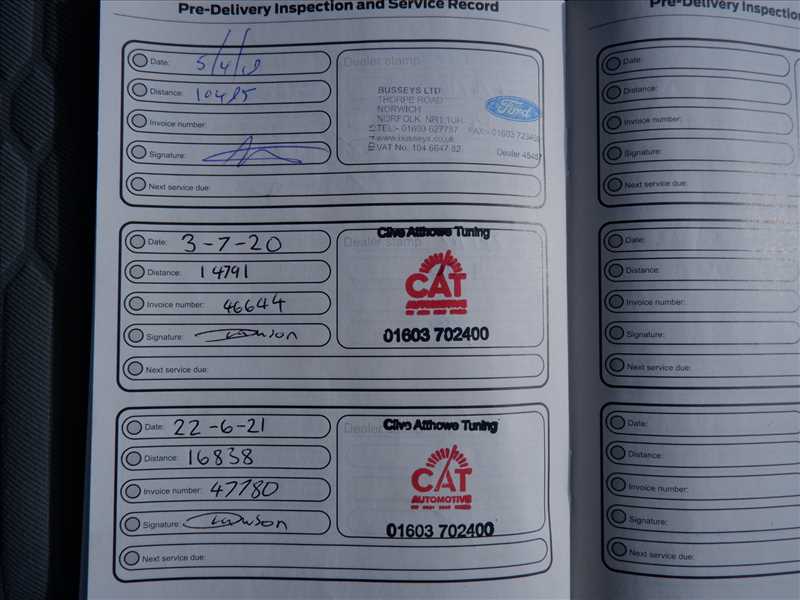 Pre-Delivery Inspection and Service Record
Date: 5/4/19
Distance: 10485
Invoice number:
Signature:
Next service due:
Dealer stamp
BUSSEYS LTD
THORPE ROAD
NORWICH
NORFOLK NR1 1UH
TEL:- 01603 627787 FAX:- 01603
www.busseys.co.uk
VAT No. 104 6647 82
Dealer 45457
Ford
Date: 3-7-20
Distance: 14791
Invoice number: 46644
Signature:
Next service due:
Dealer stamp
Clive Atthowe Tuning
CAT
AUTOMOTIVE
01603 702400
Date: 22-6-21
Distance: 16838
Invoice number: 47780
Signature:
Next service due:
Dealer
Clive Atthowe Tuning
CAT
AUTOMOTIVE
01603 702400
Pre-Delivery Inspection
Date:
Distance:
Invoice number:
Signature:
Next service due:
Date:
Distance:
Invoice number:
Signature:
Next service due:
Date:
Distance:
Invoice number:
Signature:
Next service due: